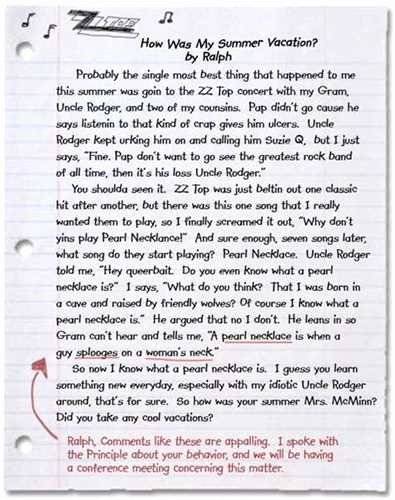 ZZ TOP
How Was My Summer Vacation?
by Ralph
Probably the single most best thing that happened to me
this summer was goin to the ZZ Top concert with my Gram,
Uncle Rodger, and two of my counsins. Pap didn't go cause he
says listenin to that kind of crap gives him ulcers. Uncle
Rodger kept urking him on and calling him Suzie Q, but I just
says, "Fine. Pap don't want to go see the greatest rock band
of all time, then it's his loss Uncle Rodger."
You shoulda seen it. ZZ Top was just beltin out one classic
hit after another, but there was this one song that I really
wanted them to play, so I finally screamed it out, "Why don't
yins play Pearl Necklance!" And sure enough, seven songs later,
what song do they start playing? Pearl Necklace. Uncle Rodger
told me, "Hey queerbait. Do you even know what a pearl
necklace is?" I says, "What do you think? That I was born in
a cave and raised by friendly wolves? Of course I know what a
pearl necklace is." He argued that no I don't. He leans in so
Gram can't hear and tells me, "A pearl necklace is when a
guy splooges on a woman's neck."
So now I know what a pearl necklace is. I guess you learn
something new everyday, especially with my idiotic Uncle Rodger
around, that's for sure. So how was your summer Mrs. McMinn?
Did you take any cool vacations?
Ralph, Comments like these are appalling. I spoke with
the Principle about your behavior, and we will be having
a conference meeting concerning this matter.